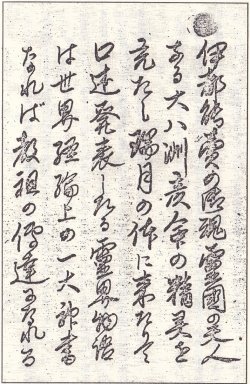 伊都能賣の御魂靈國の天人
なる大八洲彦命の精霊を
充たし瑞月の体に来たりて
口述発表したる靈界物語
は世界経綸上の一大神書
なれば教祖の傳達されたる